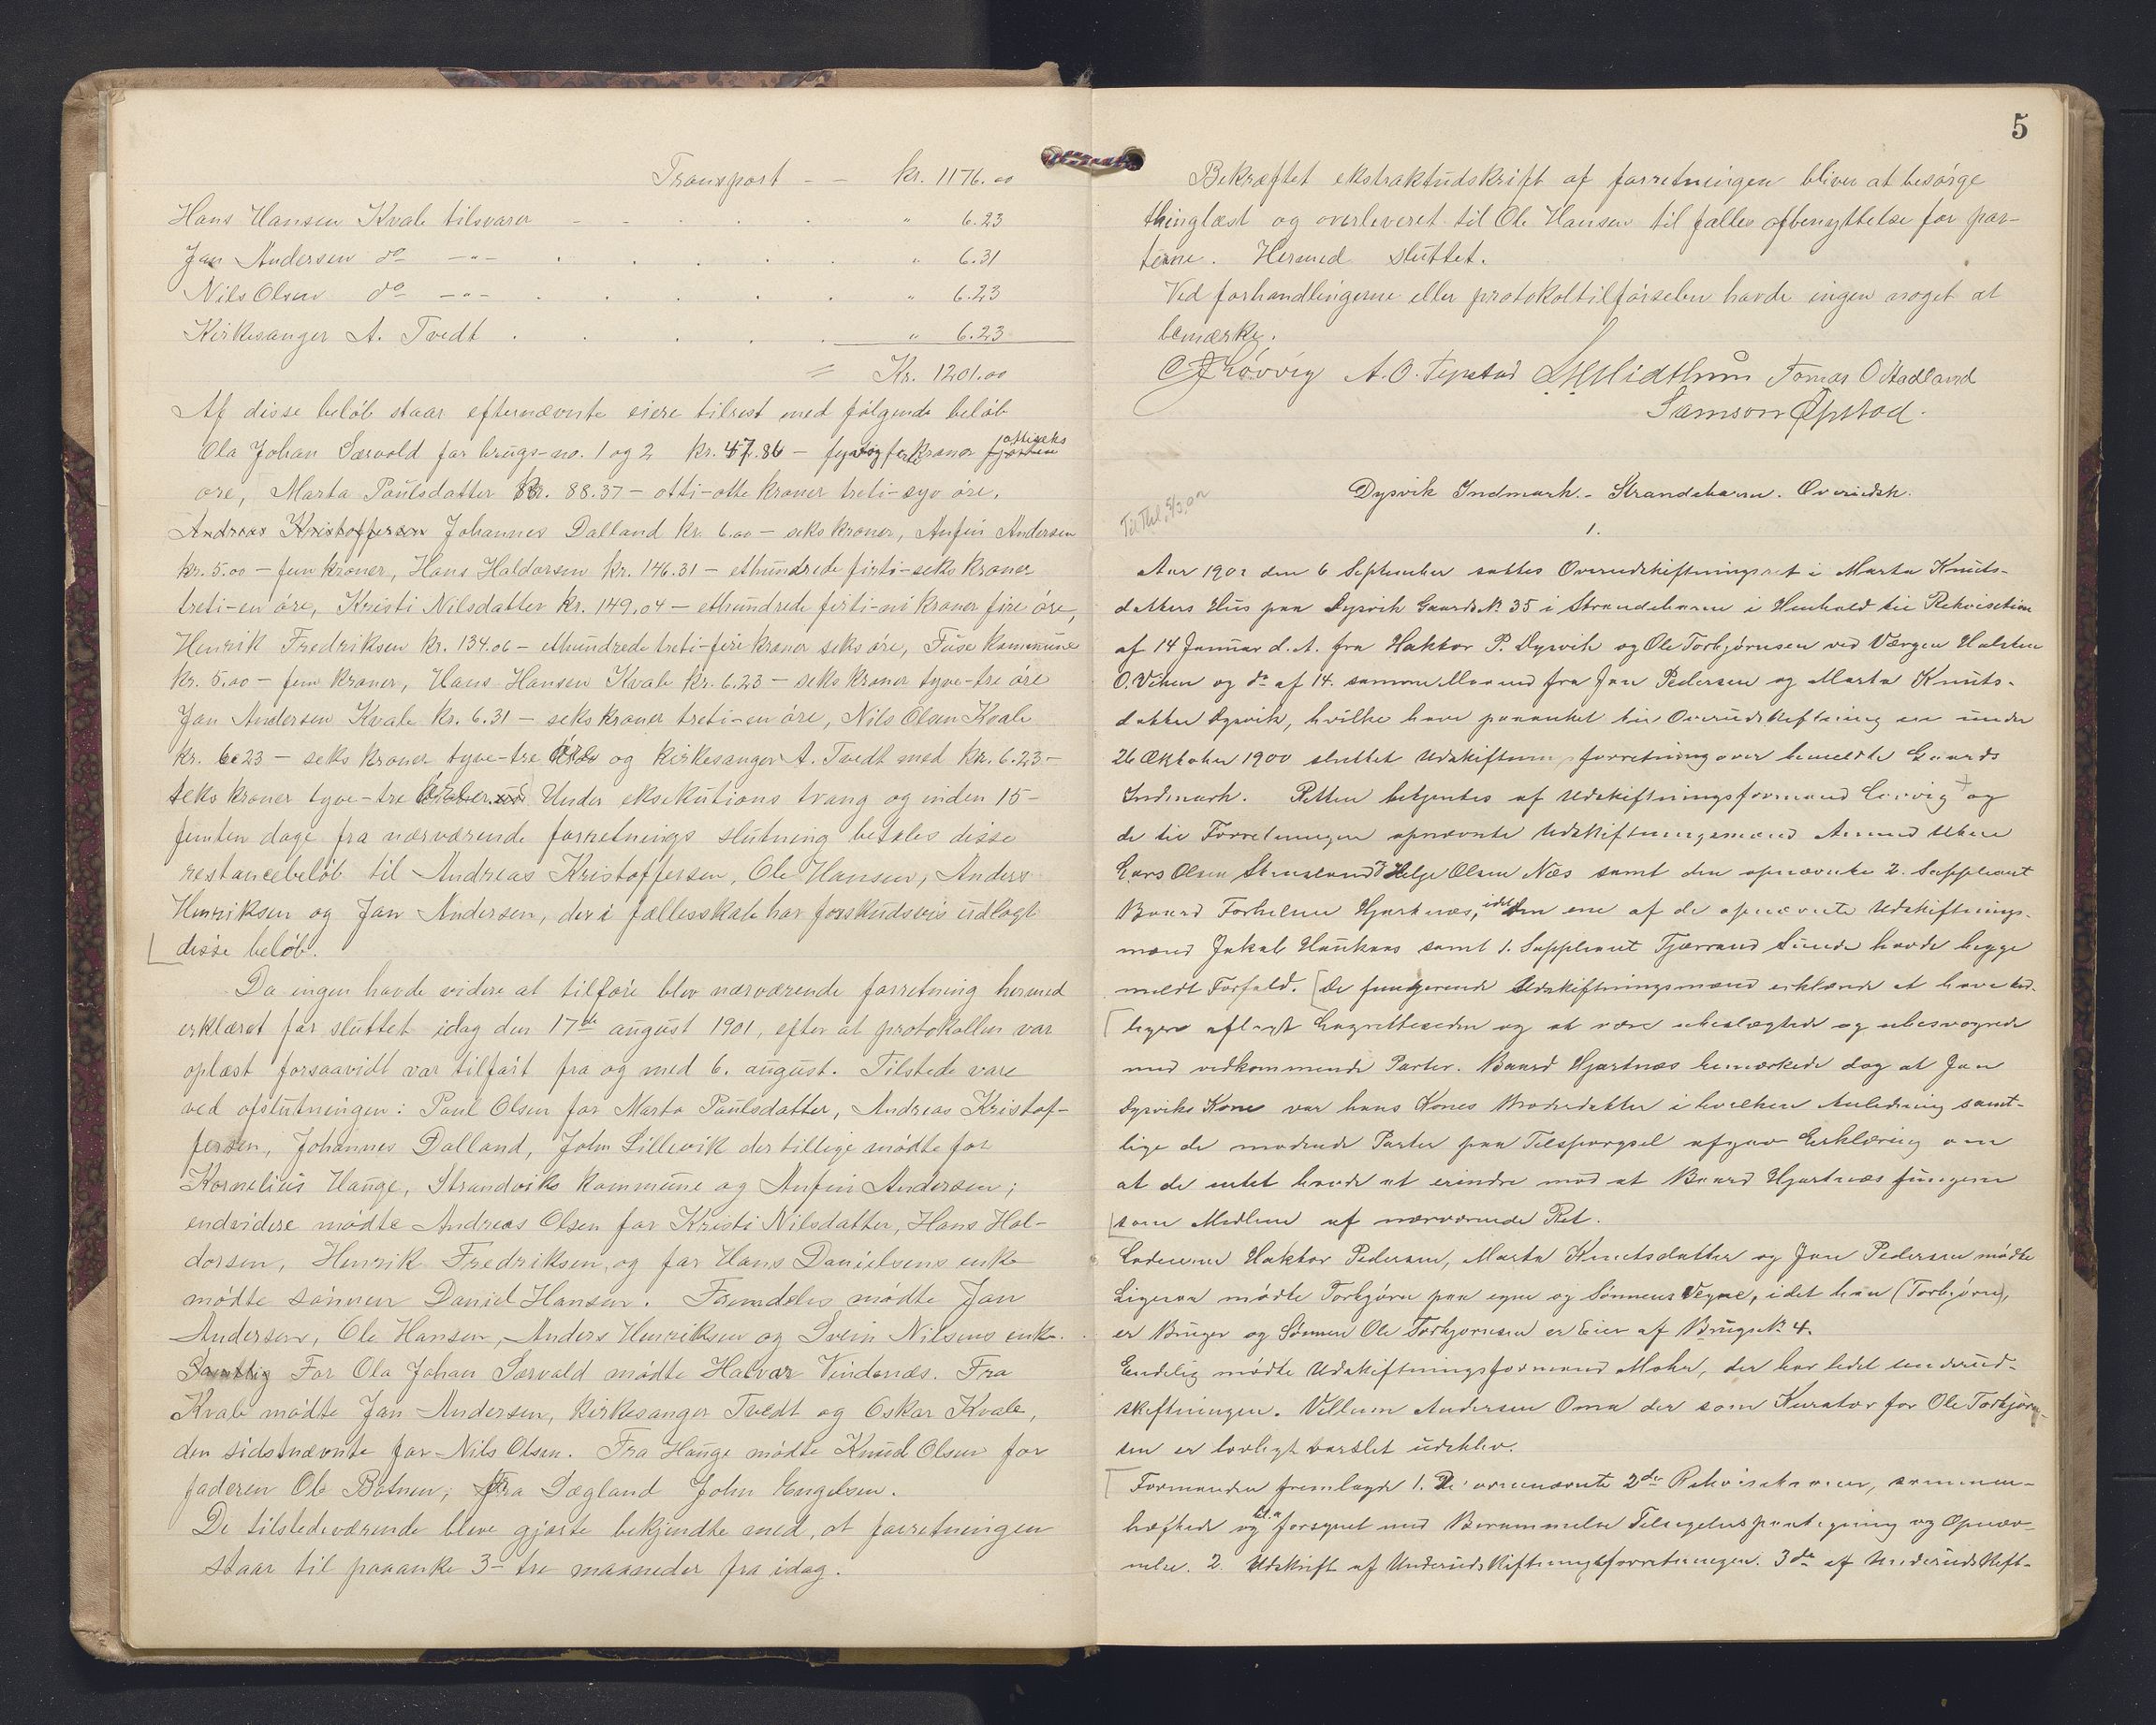 Transport - - kr. 1176.00
Hans Hansen Kvale tilsvarer - - . . . " 6.23
Jan Andersen do -"- . . . . . " 6.31
Nils Olsen do -"- . . . . . " 6.23
Kirkesanger A. Tvedt . . . . . " 6.23
= Kr. 1201.00
Af disse beløb staar efternævnte eiere tilrest med følgende beløb
Ola Johan Særvold for brugs-no. 1 og 2 kr. 47.86 - kroner ottiseks
øre, Marta Paulsdatter kr. 88.37 - otti-otte kroner treti-syv øre,
Andreas Kristoffersen Johannes Dalland kr. 6.00 - seks kroner, Anfin Andersen
kr. 5.00 - fem kroner, Hans Haldorsen kr. 146.31 - ethundrede firti-seks kroner
treti-en øre, Kristi Nilsdatter kr. 149.04 - ethundrede firti-ni kroner fire øre,
Henrik Fredriksen kr. 134.06 - ethundrede treti-fire kroner seks øre, Fuse kommune
kr. 5.00 - fem kroner, Hans Hansen Kvale kr. 6.23 - seks kroner tyve-tre øre
Jan Andersen Kvale kr. 6.31 - seks kroner treti-en øre, Nils Olsen Kvale
kr. 6.23 - seks kroner tyve-tre øre og kirkesanger A. Tvedt med kr. 6.23 -
seks kroner tyve-tre Under eksekutions tvang og inden 15-
femten dage fra nærværende forretnings slutning betales disse
restancebeløb til Andreas Kristoffersen, Ole Hansen, Anders
Henriksen og Jan Andersen, der i fællesskab har forskudsvis udlagt
disse beløb.
Da ingen havde videre at tilføie blev nærværende forretning hermed
erklæret for sluttet idag den 17de august 1901, efter at protokollen var
oplæst forsaavidt var tilført fra og med 6. august. Tilstede vare
ved afslutningen: Paul Olsen for Marta Paulsdatter, Andreas Kristof-
fersen, Johannes Dalland, John Lillevik der tillige mødte for
Kornelius Hauge, Strandviks kommune og Anfin Andersen;
endvidere mødte Andreas Olsen for Kristi Nilsdatter, Hans Hal-
dorsen, Henrik Fredriksen, og for Hans Danielsens enke
mødte sønnen Daniel Hansen. Fremdeles mødte Jan
Andersen, Ole Hansen, Anders Henriksen og Svein Nilsens enke.
For Ola Johan Særvold mødte Halvor Vindenæs. Fra
Kvale mødte Jan Andersen, kirkesanger Tvedt og Oskar Kvale,
den sidstnævnte for Nils Olsen. Fra Hauge mødte Knud Olsen for
faderen Ole Botnen; fra Sægland John Engelsen.
De tilstedeværende bleve gjorte bekjendte med, at forretningen
staar til paaanke 3- tre maaneder fra idag.
5
Bekræftet ekstraktudskrift af forretningen bliver at besørge
thinglæst og overleveret til Ole Hansen til fælles afbenyttelse for par-
terne. Hermed sluttet.
Ved forhandlingerne eller protokoltilførselen havde ingen noget at
bemærke.
A. O. Tepstad Tomas O Hadland
Samson Øpstad.
Dysvik Indmark. - Strandebarm. Overudsk.
1.
Aar 1902 den 6 September sattes Overudskiftningsret i Marta Knuts-
datters Hus paa Dysvik Gaards No. 35 i Strandebarm i Henhold til Rekvisition
af 14 Januar d. A. fra Haktor P. Dysvik og Ole Torbjørnsen ved Værgen Halsten
O. Viken og do af 14. samme Maaned fra Jan Pedersen og Marta Knuts-
datter Dysvik, hvilke have paaanket til Overudskiftning en under
26 Oktober 1900 sluttet Udskiftningsforretning over bemeldte Gaards
Indmark. Retten betjentes af Udskiftningsformand og
de til Forretningen opnævnte Udskiftningsmænd
Lars Olsen Helge Olsen Næs samt den opnævnte 2. Suppleant
Baard Hjartnæs, idet den ene af de opnævnte Udskiftnings-
mænd Jakob Haukaas samt 1. Suppleant havde begge
meldt Forfald. De fungerende Udskiftningsmænd erklærede at have tid-
ligere aflagt Lagretteseden og at være ubeslægtede og ubesvogrede
med vedkommende Parter. Baard Hjartnæs bemærkede dog at Jan
Dysviks Kone var hans Kones Brodersdatter i hvilken Anledning samt-
lige de mødende Parter paa Tilspørgsel afgav Erklæring om
at de intet havde at erindre mod at Baard Hjartnæs fungerer
som Medlem af nærværende Ret.
Lodeierne Haktor Pedersen, Marta Knutsdatter og Jan Pedersen mødte
Ligesaa mødte Torbjørn paa egne og Sønnens Vegne, idet han (Torbjørn),
er Bruger og Sønnen Ole Torbjørnsen er Eier af Brugs No. 4.
Endelig mødte Udskiftningsformand Mohr, der har ledet underud-
skiftningen. Vellum Andersen Oma der som Kurator for Ole Torbjørn-
sen er lovligt varslet udeblev.
Formanden fremlagde 1. De ovennævnte 2de Rekvisitioner, sammen-
hæftede og forsynet med Berammelse Tilsigelsespaategning og Opnæv-
nelse. 2. Udskrift af Underudskiftningsforretningen. 3de af Underudskift-